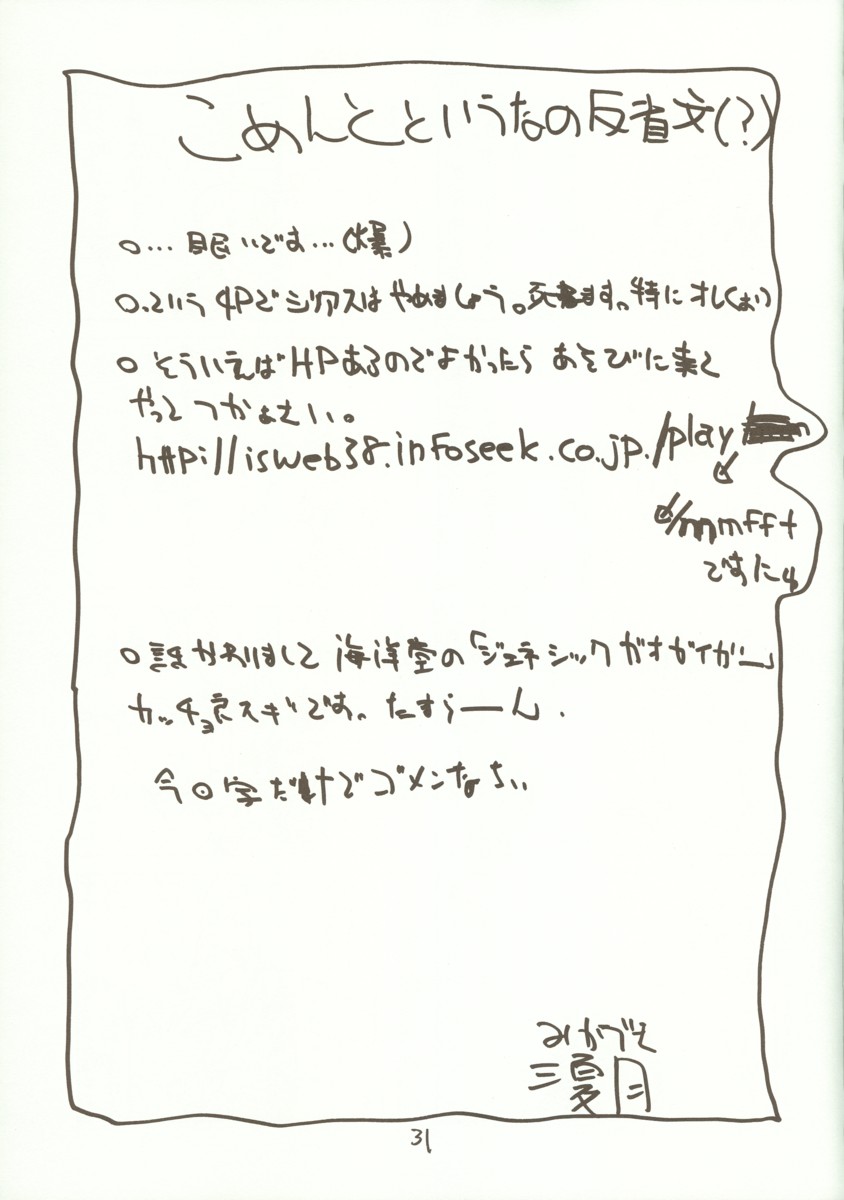 こめんとというなの反省文(?)
○…眠いです…(爆)
○.という4Pでジアスはやめましょう。死ねます。特にオレ(おい)
○そういえばHPあるのでよかったらあそびに来て
やってつかぁさい。
http://isweb38.infoseek.co.jp./play
/mmfft
ですにゅ
○誰かおりまして海洋堂の「ジェネシックガオガイガー」
カッチョ良スギです。たすうーん.
今回字だけでゴメンなさい
みかづき
三夏月
31